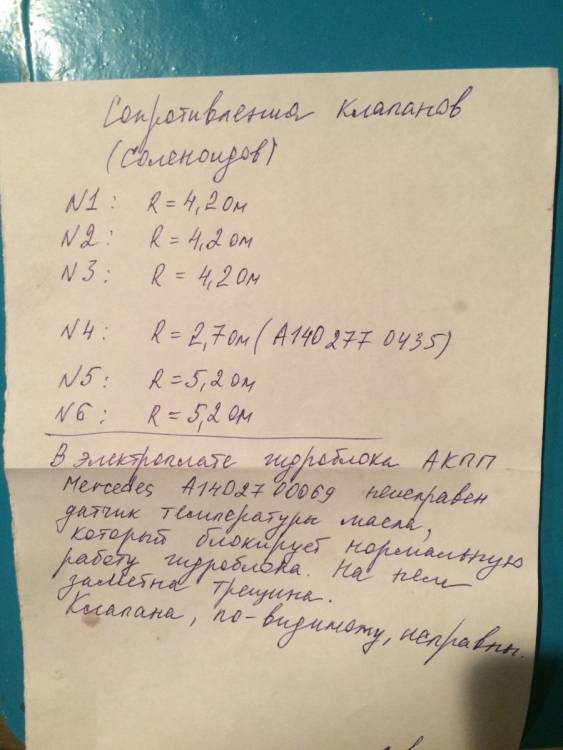 Сопротивления клапанов
(Соленоидов)
N1: R = 4,2 Ом
N2: R = 4,2 Ом
N3: R = 4,2 Ом
N4: R = 2,7 Ом (A140 277 0435)
N5: R = 5,2 Ом
N6: R = 5,2 Ом
В электроплате гидроблока АКПП
Mercedes A1402700069 неисправен
датчик температуры масла,
который блокирует нормальную
работу гидроблока. На нем
заметна трещина.
Клапана, по-видимому, исправны.